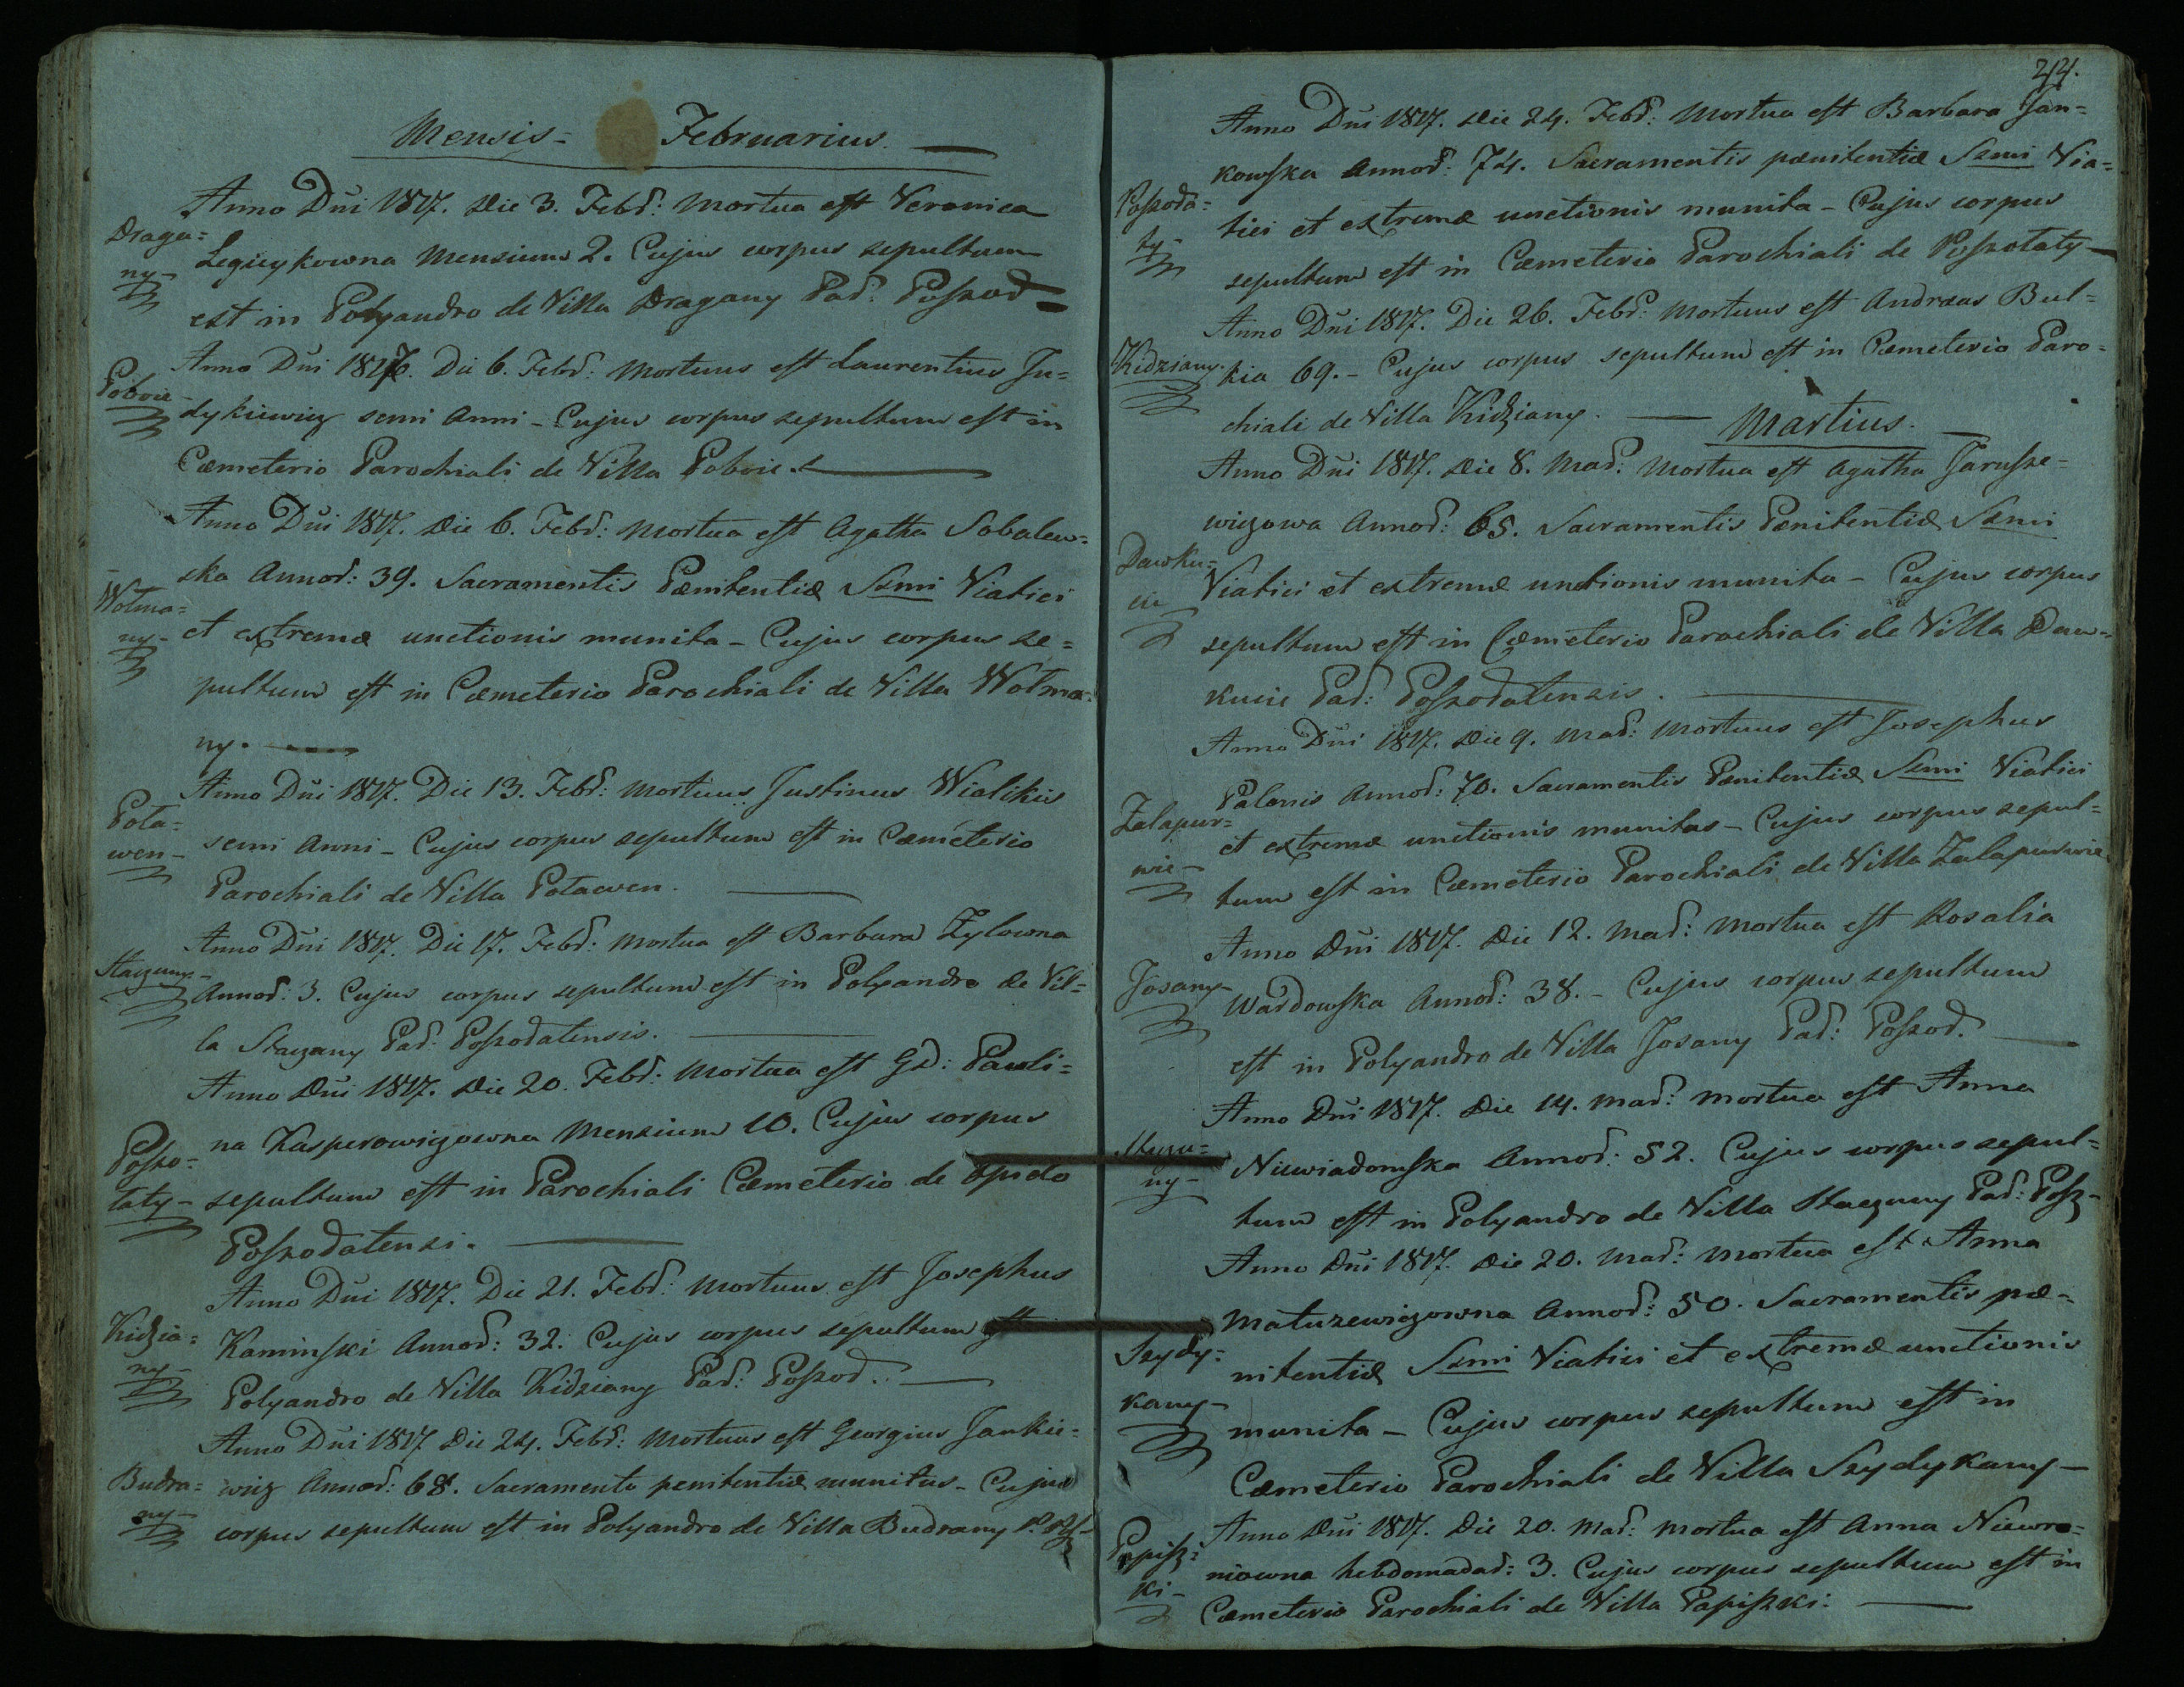 Mensis = Februarius. —
Anno Dni 1817. Die 3. Febr: Mortua est Veronica
Draga=
ny- Legieykowna Mensium 2. Cujus corpus sepultum
est in Polyandro de Villa Dragany Par: Poszod
Anno Dni 1817. Die 6. Febr: Mortuus est Laurentius Ju=
Poboie- dykiewicz semi Anni - Cujus corpus sepultum est in
Cæmeterio Parochiali de Villa Poboie.
Anno Dni 1817. Die 6. Febr: Mortua est Agatha Sobalew=
ska Annor: 39. Sacramentis Pænitentiæ Ssmi Viatici
Wolma=
ny- et extremæ unctionis munita - Cujus corpus se=
pultum est in Cæmeterio Parochiali de Villa Wolma=
ny.
Anno Dni 1817. Die 13. Febr: Mortuus Justinus Wialikis
Pola=
wen- semi Anni - Cujus corpus sepultum est in Cæmeterio
Parochiali de Villa Polawen.
Anno Dni 1817. Die 17. Febr: Mortua est Barbara Zylowna
Staczuny- Annor: 3. Cujus corpus sepultum est in Polyandro de Vil=
la Staczany Par: Poszodatensis.
Anno Dni 1817. Die 20. Febr: Mortua est GD: Pauli=
na Kasperowiczowna Mensium 10. Cujus corpus
Poszo=
taty- sepultum est in Parochiali Cæmeterio de opido
Poszodatensi.
Anno Dni 1817. Die 21. Febr: Mortuus est Josephus
Kidzia=
ny- Kaminski Annor: 32. Cujus corpus sepultum est
Polyandro de Villa Kidziany Par: Poszod.
Anno Dni 1817 Die 24. Febr: Mortuus est Georgius Jankie=
Budra=
ny- wicz Annor: 68. Sacramento penitentiæ munitus - Cujus
corpus sepultum est in Polyandro de Villa Budrany
24.
Anno Dni 1817. Die 24. Febr: Mortua est Barbara Jan=
kowska Annor: 74. Sacramentis pænitentiæ Ssmi Via=
Poszoda=
ty- tici et extremæ unctionis munita - Cujus corpus
sepultum est in Cæmeterio Parochiali de Poszotaty
Anno Dni 1817. Die 26. Febr: Mortuus est Andreas Bul=
Kidziany- kia 69. - Cujus corpus sepultum est in Cæmeterio Paro=
chiali de Villa Kidziany. — Martius. —
Anno Dni 1817. Die 8. Mar: Mortua est Agatha Jarusze=
wiczowa Annor: 65. Sacramentis Pænitentiæ Ssmi
Dawku=
cie Viatici et extremæ unctionis munita - Cujus corpus
sepultum est in Cæmeterio Parochiali de Villa Daw=
kucie Par: Poszodatensis.
Anno Dni 1817. Die 9. Mar: Mortuus est Josephus
Palonis Annor: 70. Sacramentis Pænitentiæ Ssmi Viatici
Zalapur=
wie- et extremæ unctionis munitas - Cujus corpus sepul=
tum est in Cæmeterio Parochiali de Villa Zalapurwie.
Anno Dni 1817. Die 12. Mar: Mortua est Rosalia
Josany- Wardowska Annor: 38. - Cujus corpus sepultum
est in Polyandro de Villa Josany Par: Poszod.
Anno Dni 1817. Die 14. Mar: Mortua est Anna
Staczu=
ny- Niewiadomska Annor: 52. Cujus corpus sepul=
tum est in Polyandro de Villa Staczuny Par: Posz-
Anno Dni 1817. Die 20. Mar: Mortua est Anna
Matuzewiczowna Annor: 50. Sacramentis pæ=
Szydy=
kany- nitentiæ Ssmi Viatici et extremæ unctionis
munita - Cujus corpus sepultum est in
Cæmeterio Parochiali de Villa Szydykany-
Anno Dni 1817. Die 20. Mar: Mortua est Anna Niewro=
Papisz=
ki- niowna hebdomadar: 3. Cujus corpus sepultum est in
Cæmeterio Parochiali de Villa Papiszki.